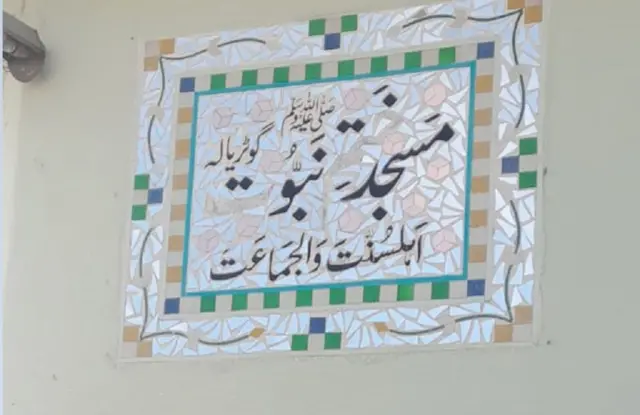 مسجد ختمِ نبوّت ﷺ گوٹریالہ
اہلسنّت والجماعت